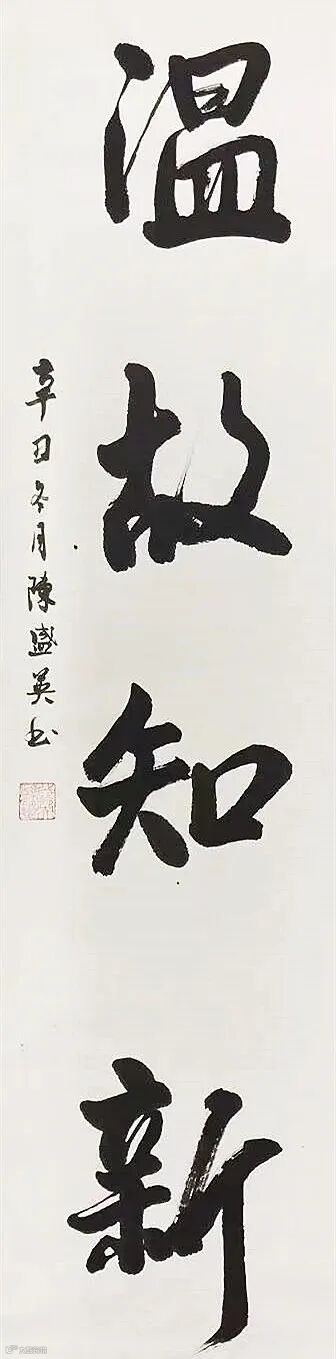 温故知新
辛丑冬月陳盛英书